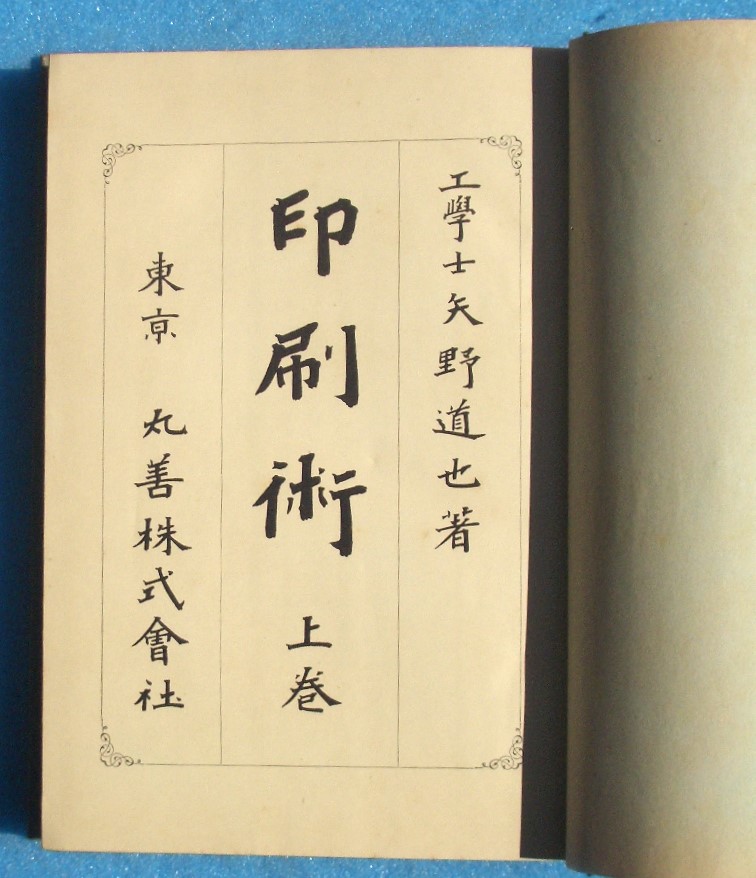 工學士矢野道也著
印刷術 上巻
東京 丸善株式會社